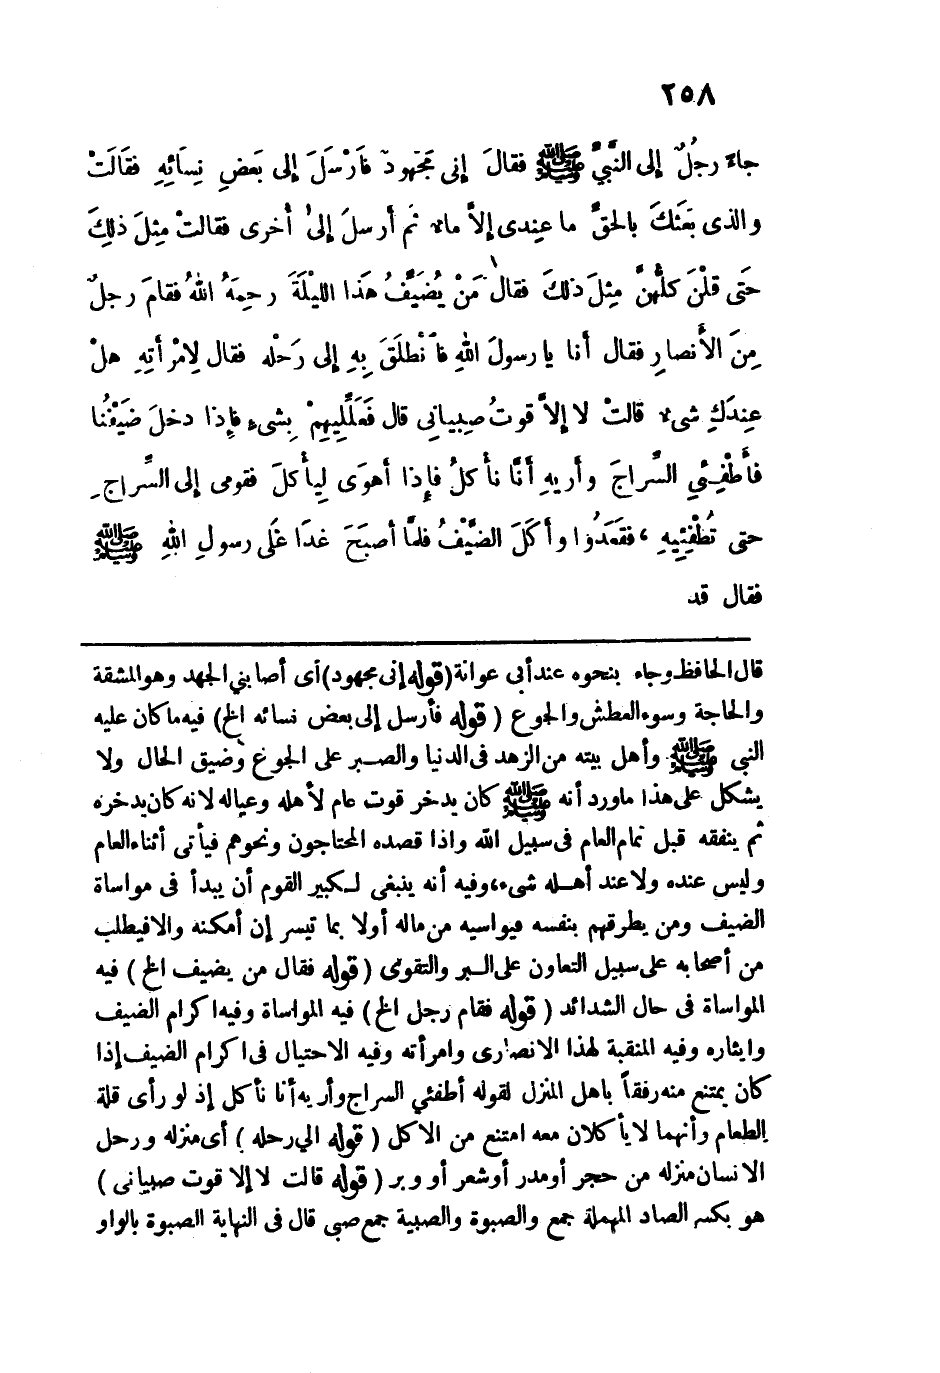 ٢٥٨
جاءَ رجُلٌ إلى النَّبيِّ ﷺ فقالَ إنى مَجْهودٌ فَأرْسَلَ إلى بَعضِ نِسَائِهِ فقَالَتْ
والذى بَعَثَكَ بالحقِّ ما عِندى إلاَّ ماءٌ ثم أرسلَ إلىٰ أُخرى فقالتْ مِثلَ ذلِكَ
حَتى قلْنَ كلُّهُنَّ مِثلَ ذلكَ فقال مَنْ يُضَيِّفُ هَذا الليْلَةَ رحِمَهُ اللهُ فقامَ رجلٌ
مِنَ الأَنصارِ فقال أنا يا رسولَ اللهِ فَانْطلَقَ بِهِ إلى رَحْلِه فقال لاِمْرأتِهِ هلْ
عِندَكِ شىء قالتْ لا إلاَّ قوتُ صِبيانِى قال فَعَلِّلِيهِمْ بِشىءٍ فإِذا دخلَ ضَيْفُنا
فأَطْفِئِي السِّراجَ وأريهِ أنَّا نأْكلُ فإِذا أهوَى لِيأْكلَ فقومى إلى السِّراجِ
حتى تُطْفِئِيهِ ، فقَعَدُوا وأكَلَ الضَّيْفُ فلمَّا أصبَحَ غدَا عَلَى رسولِ اللهِ ﷺ
فقال قد
قال الحافظ وجاء بنحوه عند أبى عوانة (قوله إنى مجهود) أى أصابني الجهد وهو المشقة
والحاجة وسوء العطش والجوع ( قوله فأرسل إلى بعض نسائه الخ) فيه ما كان عليه
النبى ﷺ وأهل بيته من الزهد فى الدنيا والصبر على الجوع وضيق الحال ولا
يشكل على هذا ماورد أنه ﷺ كان يدخر قوت عام لأهله وعياله لانه كان يدخره
ثم ينفقه قبل تمام العام فى سبيل الله واذا قصده المحتاجون ونحوهم فيأتى أثناء العام
وليس عنده ولا عند أهله شىء، وفيه أنه ينبغى لكبير القوم أن يبدأ فى مواساة
الضيف ومن يطرقهم بنفسه فيواسيه من ماله أولا بما تيسر إن أمكنه والا فيطلب
من أصحابه على سبيل التعاون على البر والتقوى ( قوله فقال من يضيف الخ ) فيه
المواساة فى حال الشدائد ( قوله فقام رجل الخ ) فيه المواساة وفيه اكرام الضيف
وايثاره وفيه المنقبة لهذا الانصارى وامرأته وفيه الاحتيال فى اكرام الضيف إذا
كان يمتنع منه رفقاً باهل المنزل لقوله أطفئي السراج وأريه أنا نأكل إذ لو رأى قلة
الطعام وأنهما لا يأكلان معه امتنع من الاكل ( قوله الي رحله ) أى منزله ورحل
الانسان منزله من حجر أو مدر أو شعر أو وبر ( قوله قالت لا إلا قوت صبيانى )
هو بكسر الصاد المهملة جمع والصبوة والصبية جمع صبى قال فى النهاية الصبوة بالواو